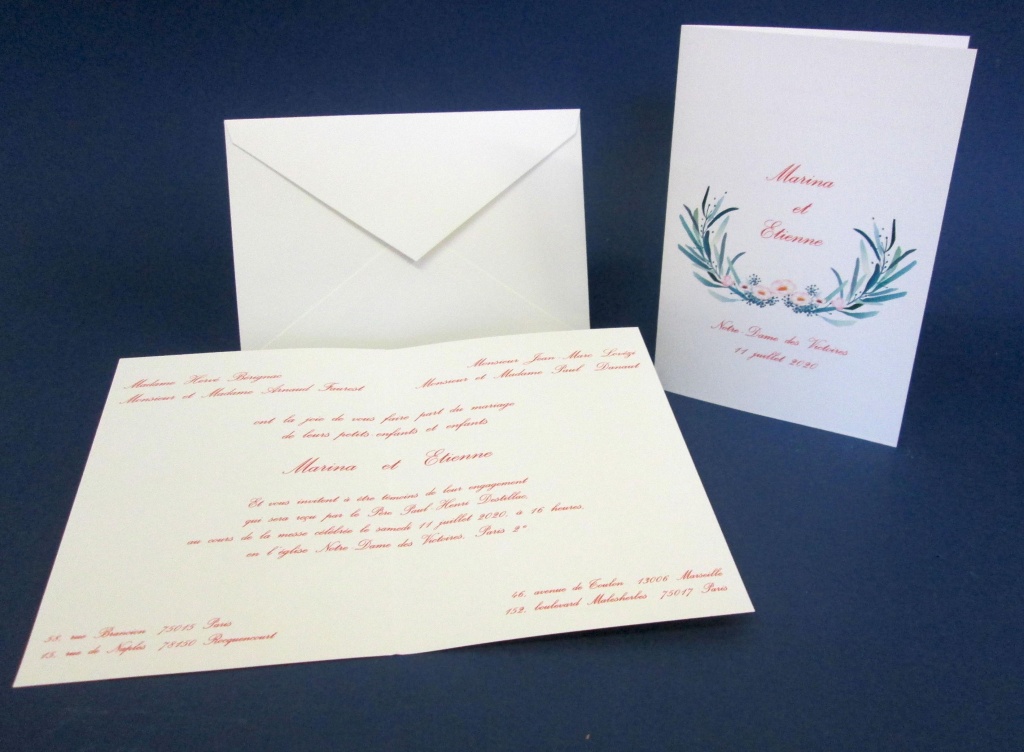 Marina
et
Etienne
Notre Dame des Victoires
11 juillet 2020
Madame Hervé
Monsieur et Madame Arnaud Faurest
Monsieur Jean-Marc
Monsieur et Madame Paul Danaut
ont la joie de vous faire part du mariage
de leurs petits enfants et enfants
Marina et Etienne
Et vous invitent à être témoins de leur engagement
qui sera reçu par le Père Paul-Henri
au cours de la messe célébrée le samedi 11 juillet 2020, à 16 heures,
en l'église Notre Dame des Victoires, Paris 2e
58, rue Brancion 75015 Paris
15, rue de Naples 78150 Rocquencourt
46, avenue de Toulon 13006 Marseille
152, boulevard Malesherbes 75017 Paris